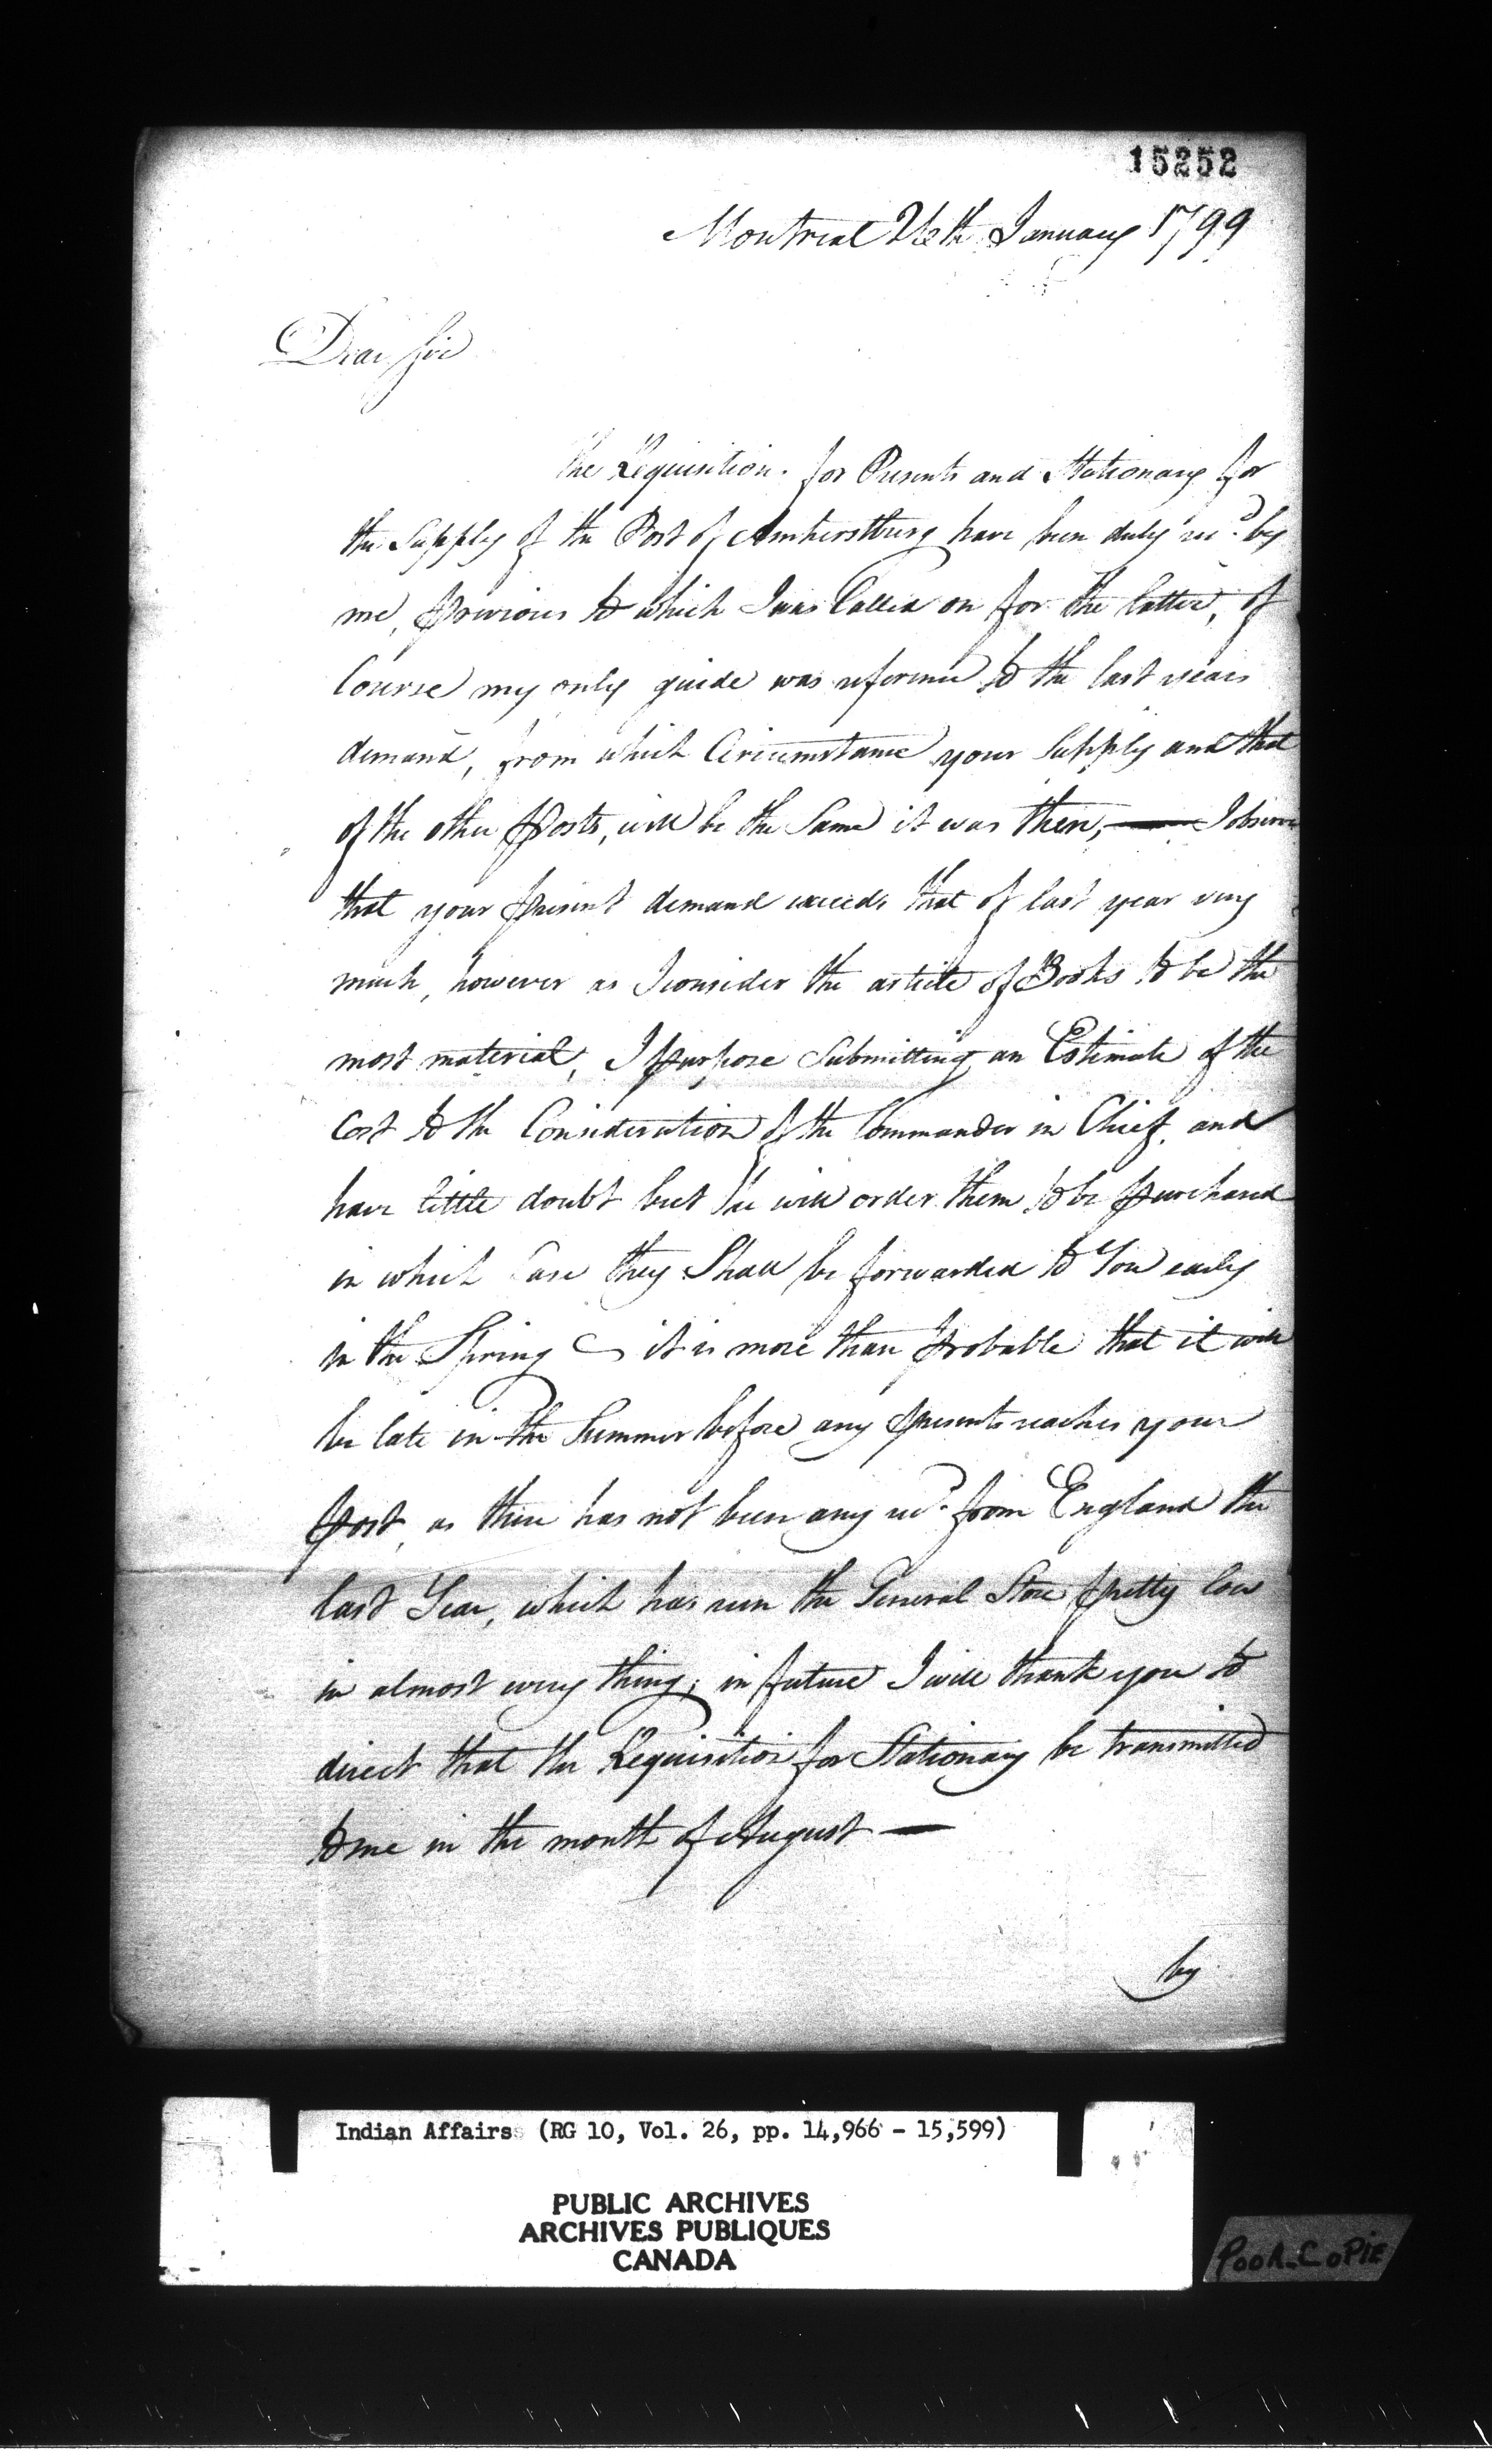 15252
Montreal 26th January 1799
Dear Sir
The Requisition for Presents and Stationary for
the Supply of the Post of Amherstburg have been duly rec.d by
me, previous to which I was Called on for the latter, of
Course my only guide was reference to the last years
demand, from which Circumstance your Supply and that
of the other Posts, will be the Same it was then, — I observe
that your present demand exceeds that of last year very
much, however as I consider the article of Books to be the
most material, I purpose Submitting an Estimate of the
Cost to the Consideration of the Commander in Chief, and
have little doubt but he will order them to be purchased
in which Case they Shall be forwarded to You early
in the Spring it is more than probable that it will
be late in the Summer before any presents reaches your
post, as there has not been any rec.d from England the
last Year, which has run the General Store pretty low
in almost every thing; in future I will thank you to
direct that the Requisition for Stationary be transmitted
to me in the month of August —
by
Indian Affairs (RG 10, Vol. 26, pp. 14,966 - 15,599)
PUBLIC ARCHIVES
ARCHIVES PUBLIQUES
CANADA
POOR COPIE